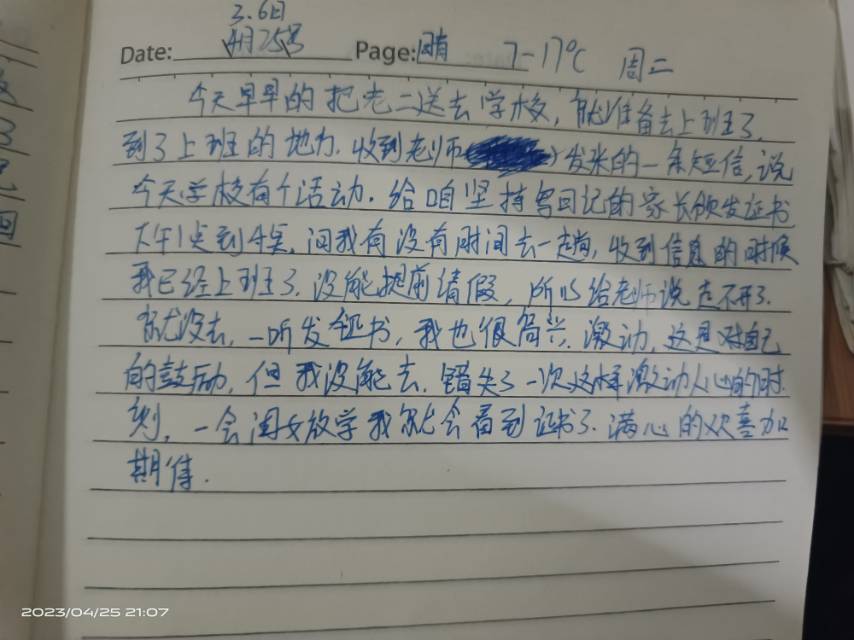 3.6日
Date: 4月25号 Page: 晴 7-17℃ 周二
今天早早的把老二送去学校,就准备去上班了.
到了上班的地方.收到老师()发来的一条短信,说
今天学校有个活动.给咱坚持写日记的家长颁发证书
下午1点到4点.问我有没有时间去一趟,收到信息的时候
我已经上班了.没能提前请假,所以给老师说走不开了.
就没去,一听发证书,我也很高兴.激动,这是对自己
的鼓励,但我没能去.错失了一次这样激动人心的时
刻,一会闺女放学我就会看到证书了.满心的欢喜加
期待.
2023/04/25 21:07